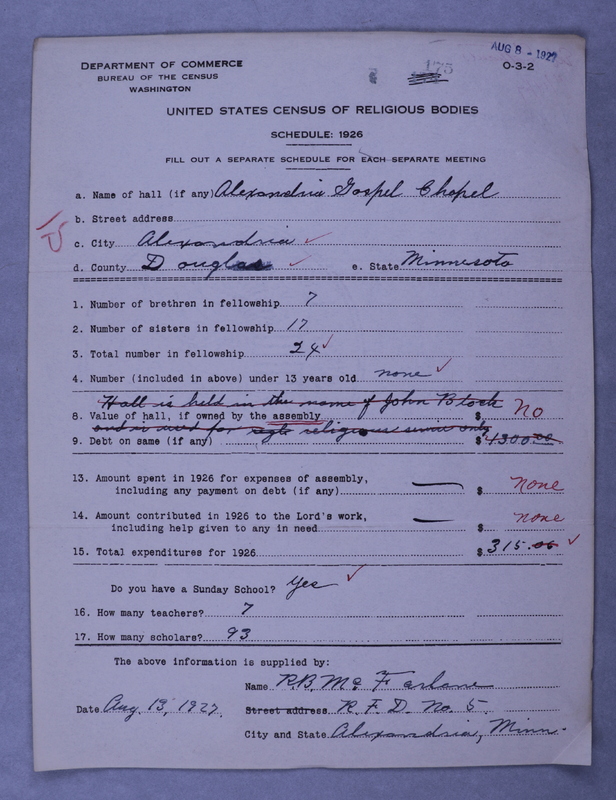 AUG 8 - 1927
DEPARTMENT OF COMMERCE
BUREAU OF THE CENSUS
WASHINGTON
175
O-3-2
UNITED STATES CENSUS OF RELIGIOUS BODIES
SCHEDULE: 1926
FILL OUT A SEPARATE SCHEDULE FOR EACH SEPARATE MEETING
a. Name of hall (if any) Alexandria Gospel Chapel
b. Street address
c. City Alexandria ✓
d. County Douglas ✓ e. State Minnesota
1. Number of brethren in fellowship 7
2. Number of sisters in fellowship 17
3. Total number in fellowship 24 ✓
4. Number (included in above) under 13 years old none ✓
Hall is held in the name of John Block
8. Value of hall, if owned by the assembly $ No
and is used for religious only
9. Debt on same (if any) $ 4300.00
13. Amount spent in 1926 for expenses of assembly,
including any payment on debt (if any) — $ none
14. Amount contributed in 1926 to the Lord's work,
including help given to any in need — $ none
15. Total expenditures for 1926 $ 315.00 ✓
Do you have a Sunday School? Yes ✓
16. How many teachers? 7
17. How many scholars? 93
The above information is supplied by:
Name R.B. McFarlane
Date Aug. 13, 1927. Street address R.F.D. No. 5.
City and State Alexandria, Minn.